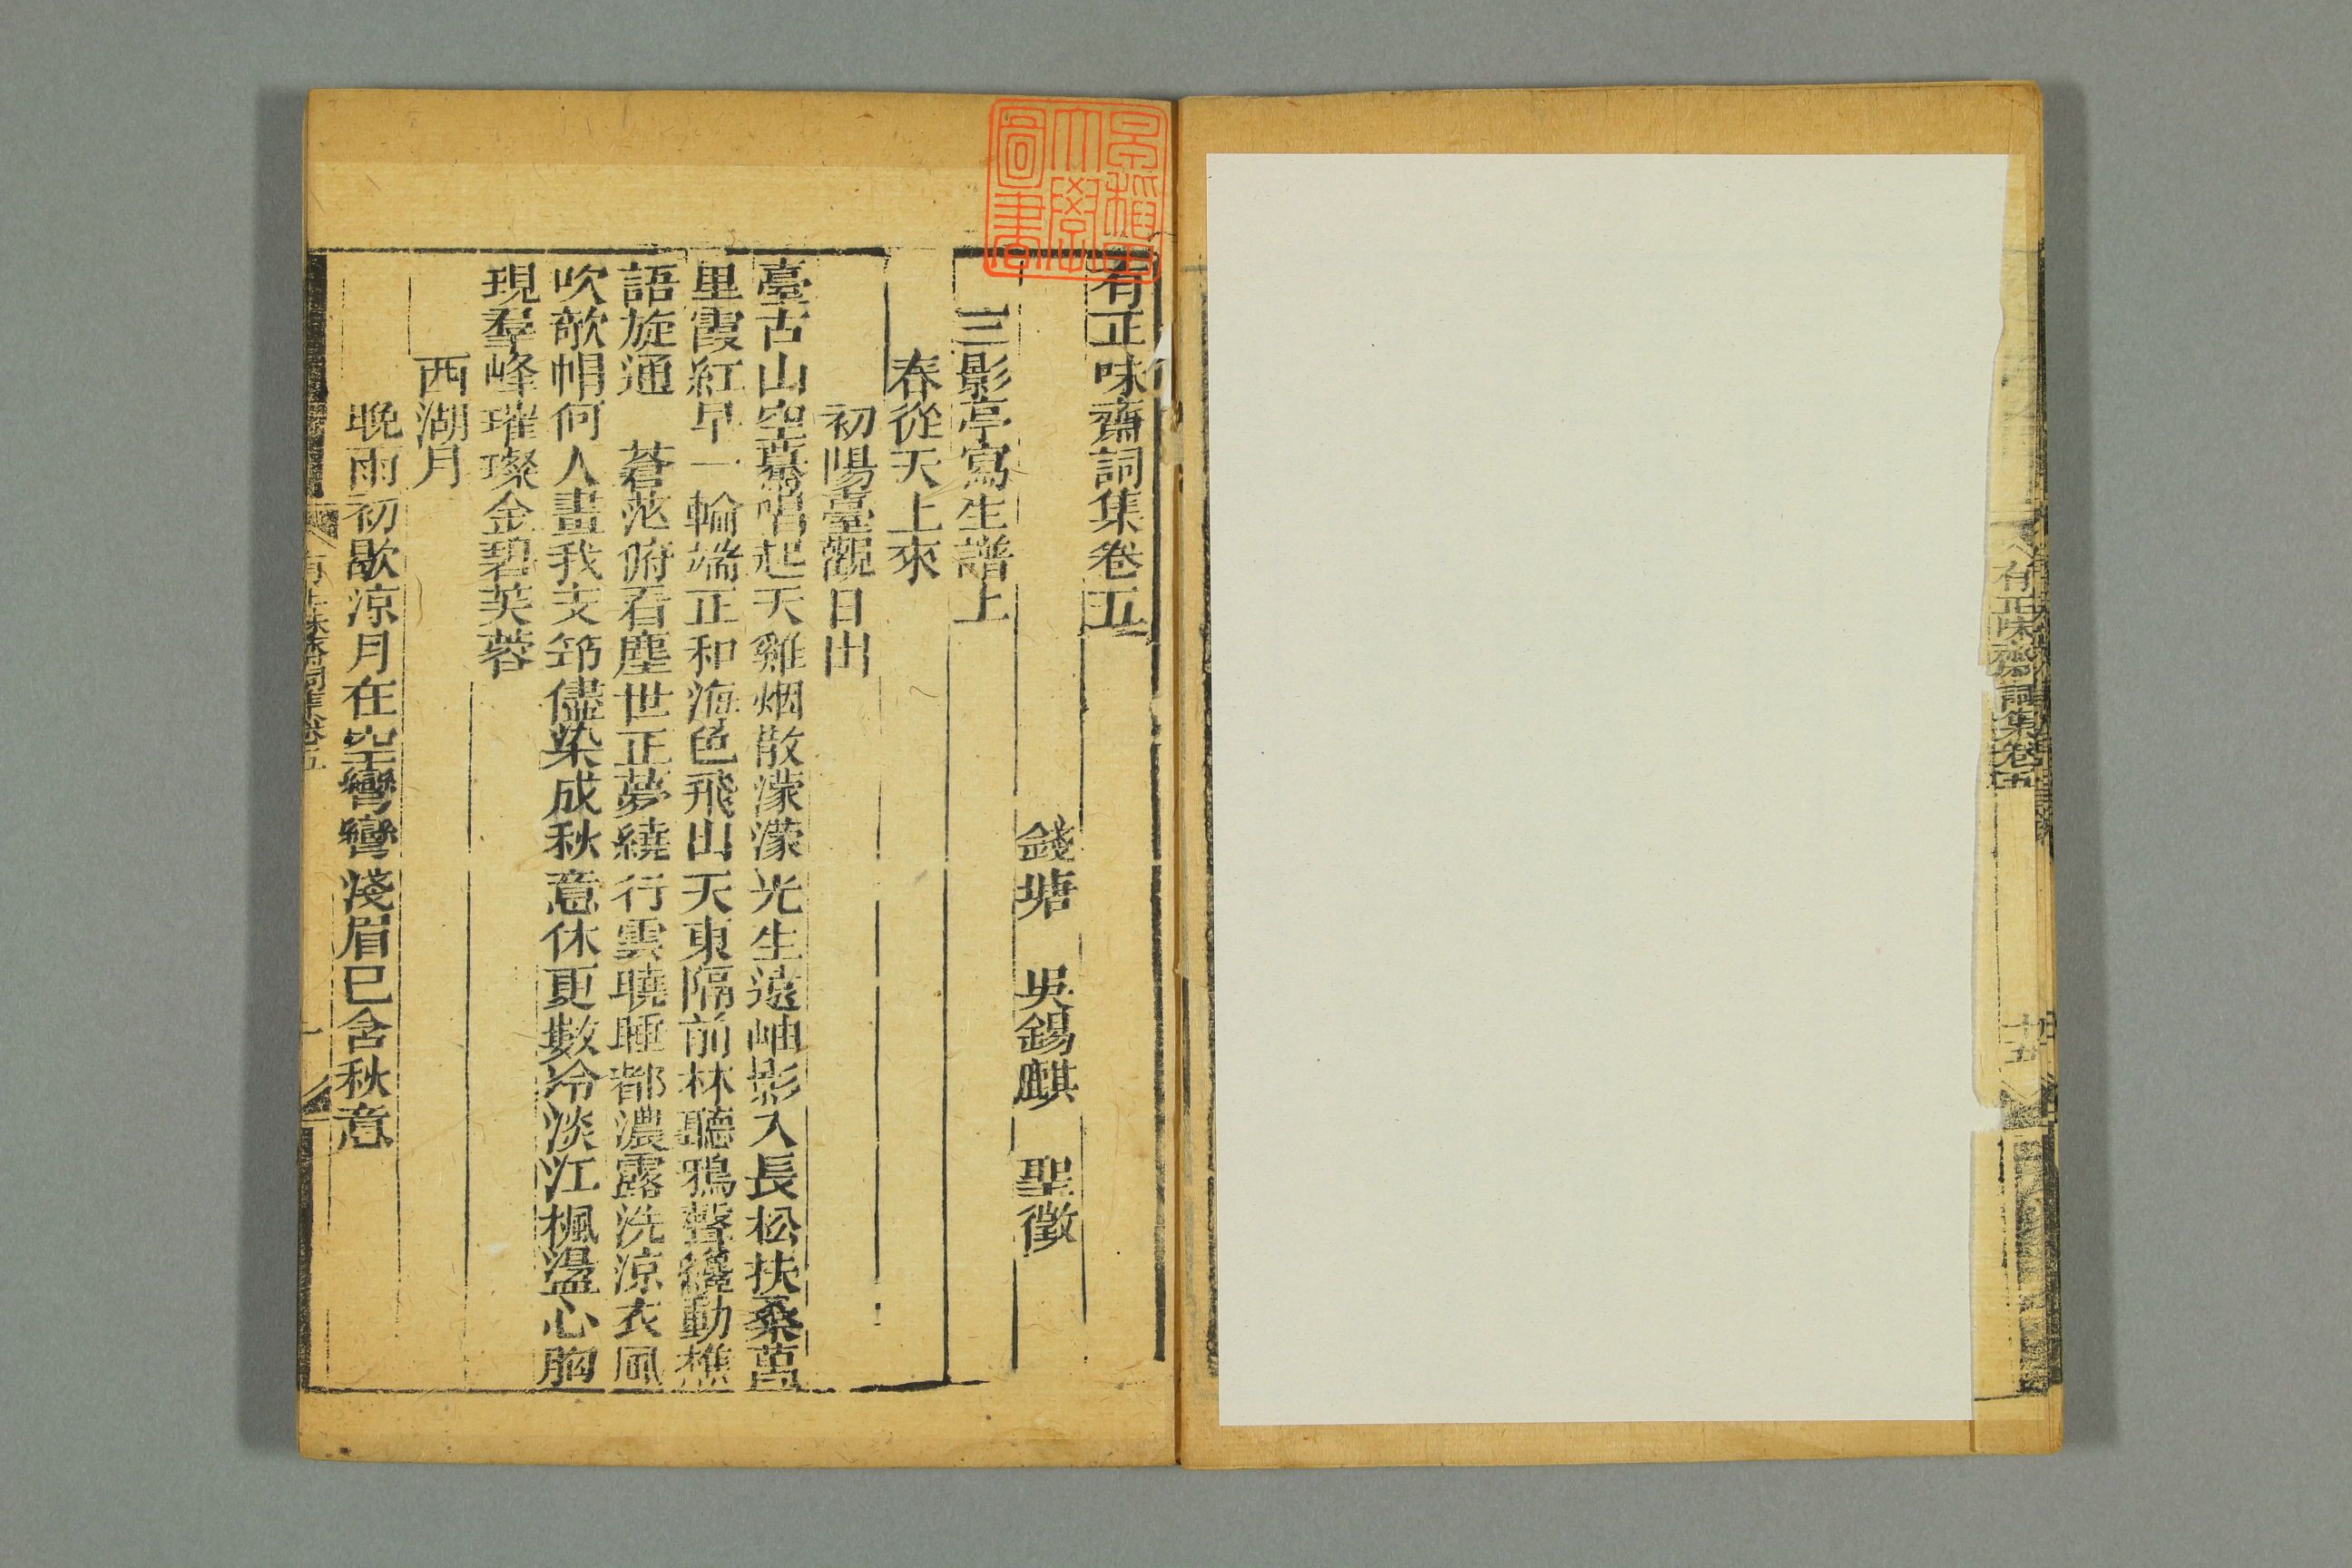 有正味齋詞集卷五
十五
有正味齋詞集卷五
錢塘 吳錫麒 聖徵
三影亭寫生譜上
春從天上來
初陽臺觀日出
臺古山空驀唱起天雞烟散濛濛光生遠岫影入長松扶桑萬
里霞紅早一輪端正和海色飛出天東隔前林聽鴉聲纔動樵
語旋通 蒼茫俯看塵世正夢繞行雲曉睡都濃露洗涼衣風
吹欹帽何人畫我支筇儘染成秋意休更數冷淡江楓盪心胸
現羣峰璀璨金碧芙蓉
西湖月
晚雨初歇涼月在空彎彎淺眉已含秋意
有正味齋詞集卷五
一
早稻田大學圖書